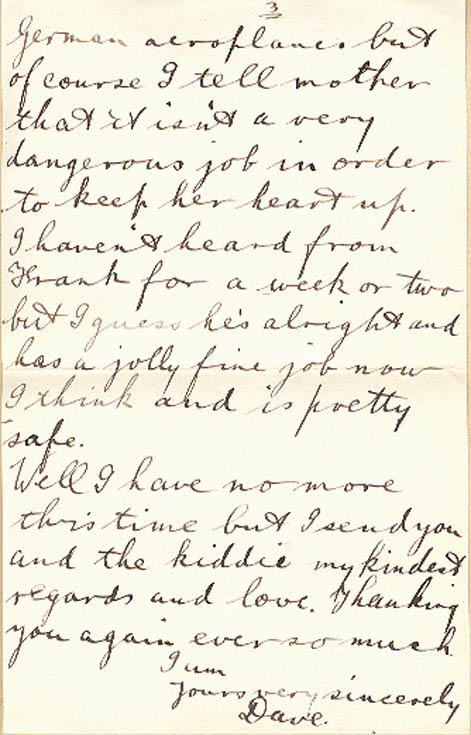 3
German aeroplanes but
of course I tell mother
that it isn't a very
dangerous job in order
to keep her heart up.
I haven't heard from
Frank for a week or two
but I guess he's alright and
has a jolly fine job now
I think and is pretty
safe.
Well I have no more
this time but I send you
and the kiddie my kindest
regards and love. Thanking
you again ever so much
I am
yours very sincerely
Dave.